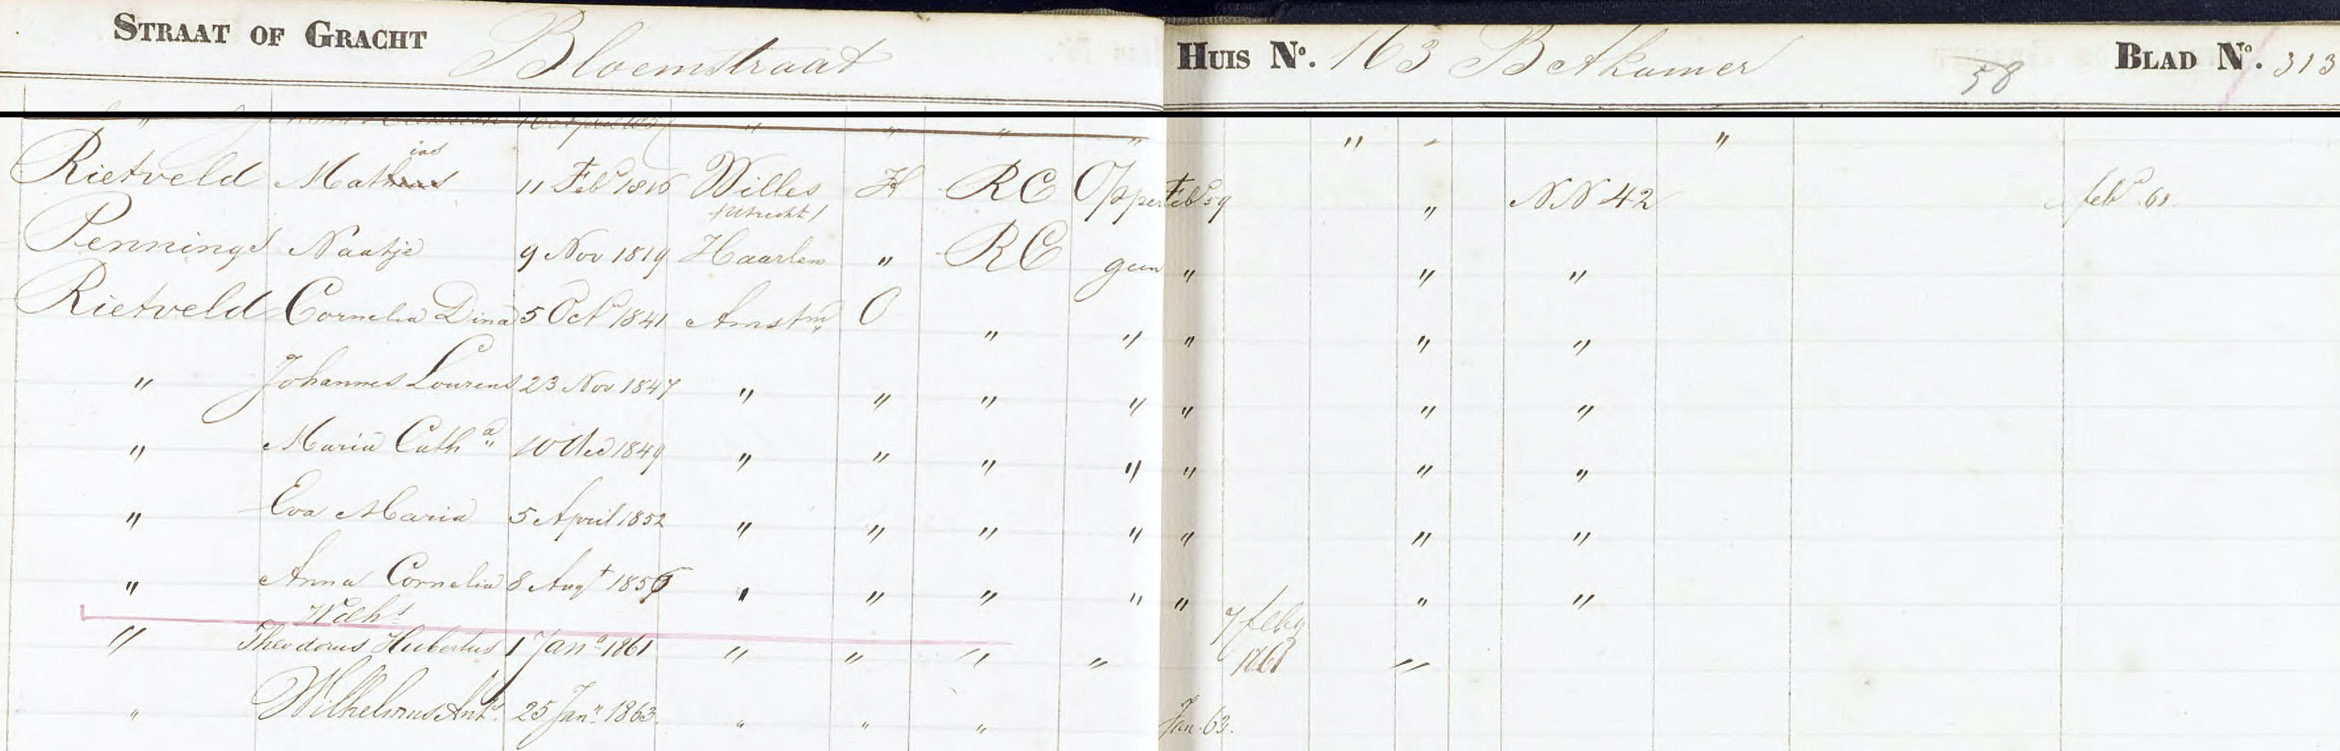 STRAAT OF GRACHT Bloemstraat HUIS No. 163 Betkamer 58 BLAD No. 313
" " " " " " " "
Rietveld Mathias 11 Feb 1816 Willes /Utrecht/ H RC Opper Feb 59 " NN 42 feb
Pennings Naatje 9 Nov 1819 Haarlem " RC geen " " "
Rietveld Cornelia Dina 5 Oct 1841 Amstm O " " " " "
" Johannes Lourens 23 Nov 1847 " " " " " " "
" Maria Catha 10 Dec 1849 " " " " " " "
" Eva Maria 5 April 1852 " " " " " " "
" Anna Cornelia 8 Augt 1856 " " " " " " "
Wilhs
" Theodorus Hubertus 1 Jana 1861 " " " " 7 feby 1861 "
" Wilhelmus Ants 25 Jann 1863 " " " Jan. 63.